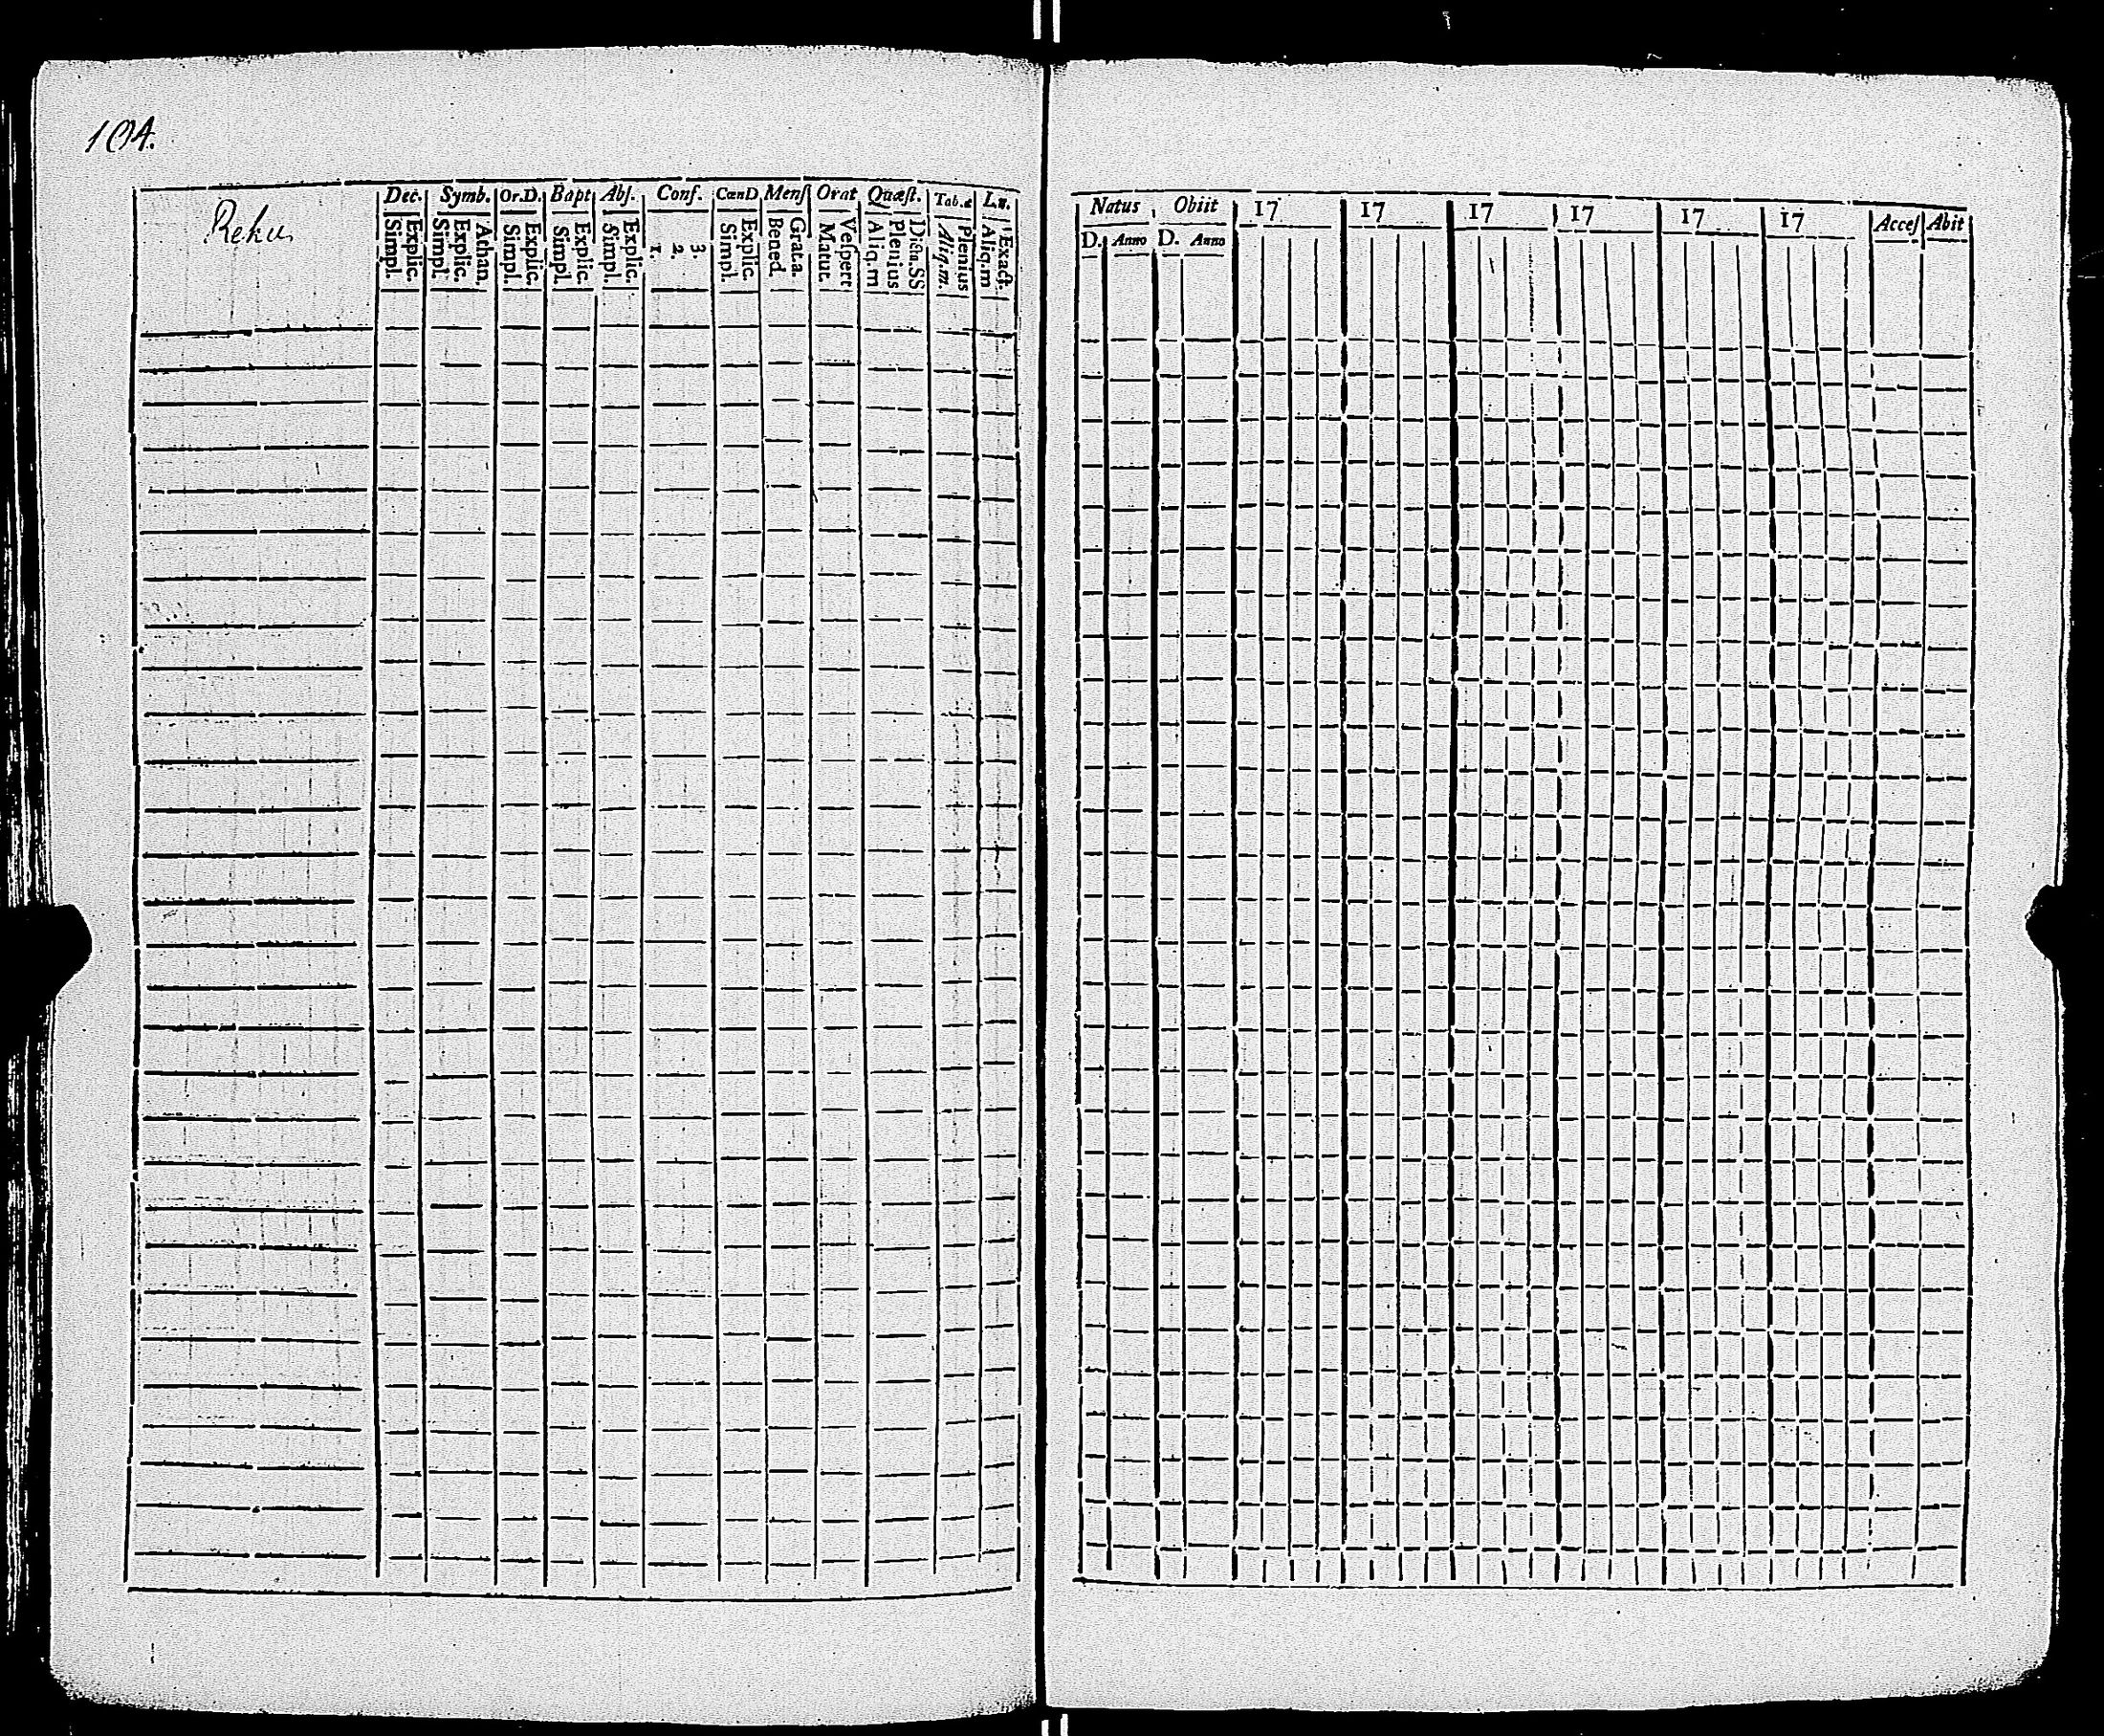 104.
Dec. Symb. Or.D. Bapt Abſ. Conf. CœnD Menſ Orat Quæſt. Tab.æ L.v.
Rehu
Explic. Simpl. Athan. Explic. Simpl. Explic. Simpl. Explic. Simpl. Explic. Simpl. 3. 2. 1. Explic. Simpl. Grata. Bened. Veſpert Matut. Dicta.SS Plenius Aliq.m Plenius Aliq.m. Exact. Aliq.m
Natus Obiit 17 17 17 17 17 17 Acceſ Abit
D. Anno D. Anno